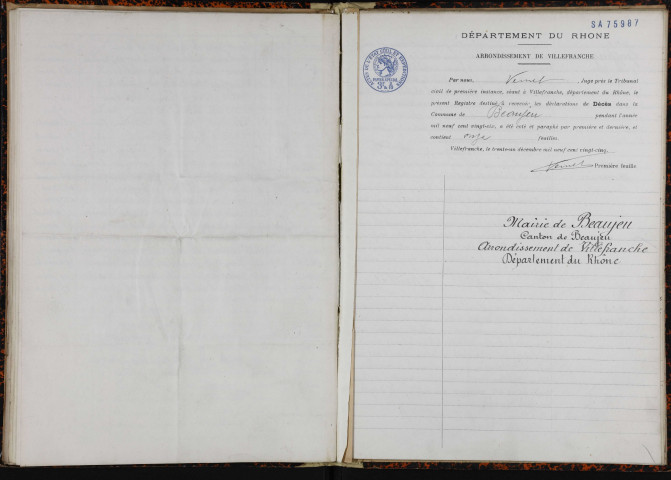 SA75987
DÉPARTEMENT DU RHONE
ARRONDISSEMENT DE VILLEFRANCHE
Par nous, Vernet, Juge près le Tribunal
civil de première instance, séant à Villefranche, département du Rhône, le
présent Registre destiné à recevoir les déclarations de Décès dans la
Commune de Beaujeu pendant l'année
mil neuf cent vingt-six, a été coté et paraphé par première et dernière, et
contient onze feuilles.
Villefranche, le trente-un décembre mil neuf cent vingt-cinq.
Vernet Première feuille
Mairie de Beaujeu
Canton de Beaujeu
Arondissement de Villefranche
Département du Rhône